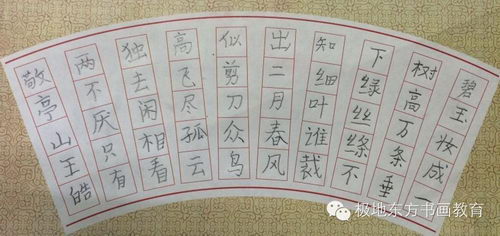 碧玉妆成一
树高万条垂
下绿丝绦不
知细叶谁裁
出二月春风
似剪刀众鸟
高飞尽孤云
独去闲相看
两不厌只有
敬亭山王皓
极地东方书画教育